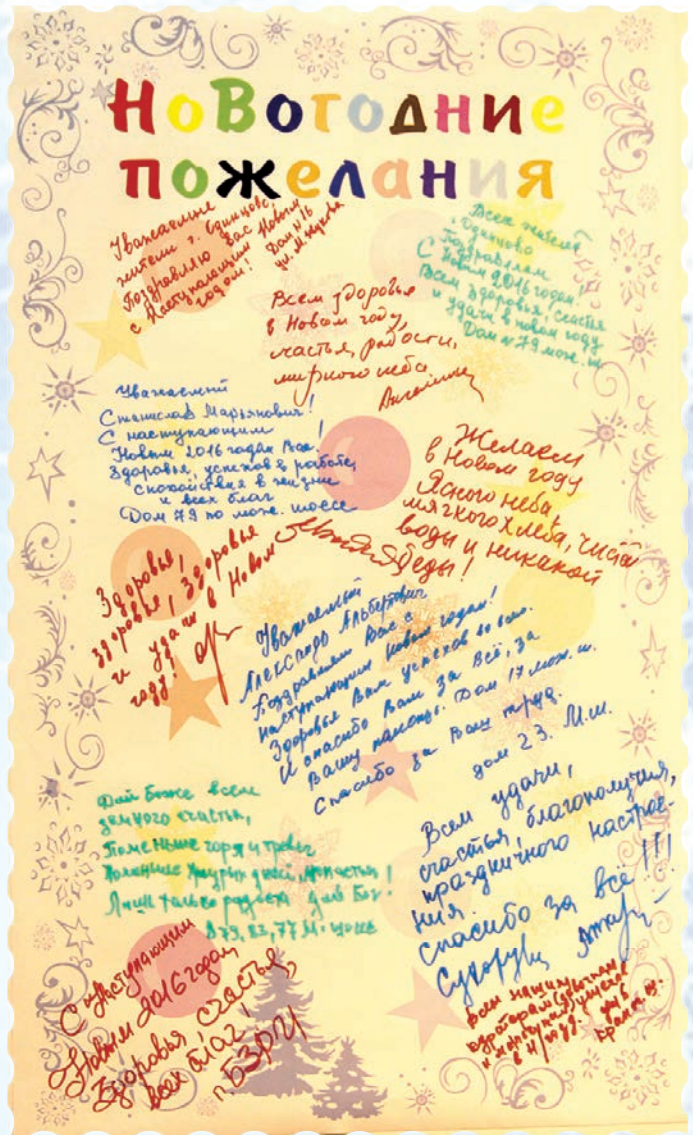 Новогодние
пожелания
Уважаемые
жители г. Одинцово,
Поздравляю Вас
с Наступающим Новым
годом! Дом № 16
ул. М. Жукова
Всех жителей
г. Одинцово
Поздравляем
С Новым 2016 годом!
Всем здоровья, счастья
и удачи в новом году
Дом № 79 мож. ш.
Всем здоровья
в Новом году,
счастья, радости,
мирного неба.
Уважаемый
Станислав Марьянович!
С наступающим
Новым 2016 годом Вас!
Здоровья, успехов в работе,
спокойствия в жизни
и всех благ
Дом 79 по мож. шоссе
Желаем
в Новом году
Ясного неба,
мягкого хлеба, чистой
воды и никакой
беды!
Здоровья,
здоровья, здоровья
и удачи в Новом
году!
Уважаемый
Александр Альбертович
Поздравляем Вас с
наступающим Новым годом!
Здоровья Вам успехов во всём.
И спасибо Вам за Всё, за
Вашу помощь. Дом 17 мож. ш.
Спасибо за Ваш труд.
дом 23. М.ш.
Дай Боже всем
земного счастья,
Поменьше горя и тревог
Поменьше хмурых дней, ненастья!
Лишь только радости дай Бог!
д 79, 83, 77 М. шоссе
Всем удачи,
счастья, благополучия,
праздничного настрое-
ния.
Спасибо за всё!!!
С Наступающим
Новым 2016 годом,
Здоровья, счастья,
всех благ!
п. БЗРИ
Всем нашим